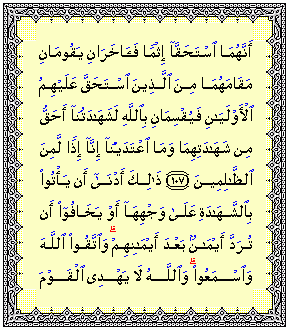 أَنَّهُمَا ٱسْتَحَقَّآ إِثْمًا فَـَٔاخَرَانِ يَقُومَانِ
مَقَامَهُمَا مِنَ ٱلَّذِينَ ٱسْتَحَقَّ عَلَيْهِمُ
ٱلْأَوْلَيَـٰنِ فَيُقْسِمَانِ بِٱللَّهِ لَشَهَـٰدَتُنَآ أَحَقُّ
مِن شَهَـٰدَتِهِمَا وَمَا ٱعْتَدَيْنَآ إِنَّآ إِذًا لَّمِنَ
ٱلظَّـٰلِمِينَ ١٠٧ ذَٰلِكَ أَدْنَىٰٓ أَن يَأْتُوا۟
بِٱلشَّهَـٰدَةِ عَلَىٰ وَجْهِهَآ أَوْ يَخَافُوٓا۟ أَن
تُرَدَّ أَيْمَـٰنٌۢ بَعْدَ أَيْمَـٰنِهِمْ ۗ وَٱتَّقُوا۟ ٱللَّهَ
وَٱسْمَعُوا۟ ۗ وَٱللَّهُ لَا يَهْدِى ٱلْقَوْمَ